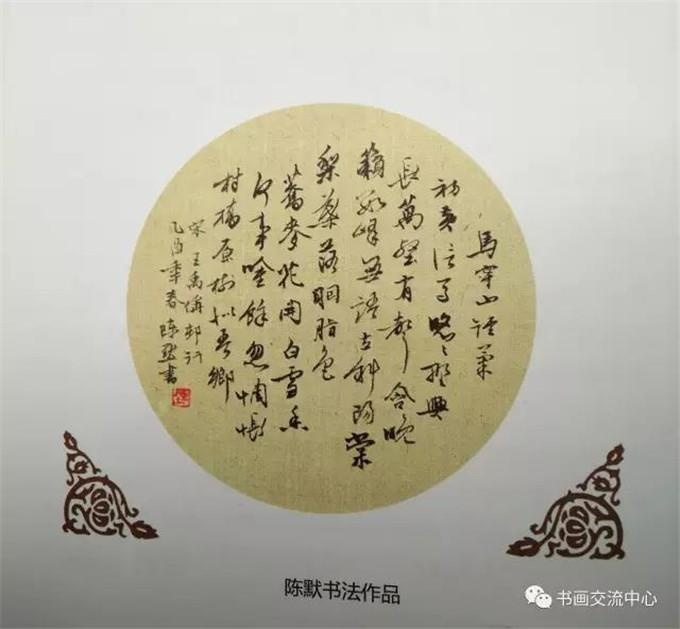 馬穿山径菊
初黄信马悠々野興
長萬壑有聲含晚
籟數峰無語立斜陽棠
梨葉落胭脂色
蕎麥花開白雪香
何事吟餘忽惆悵
村橋原樹似吾鄉
宋王禹偁邨行
乙酉年春陈默書
陈默书法作品
书画交流中心